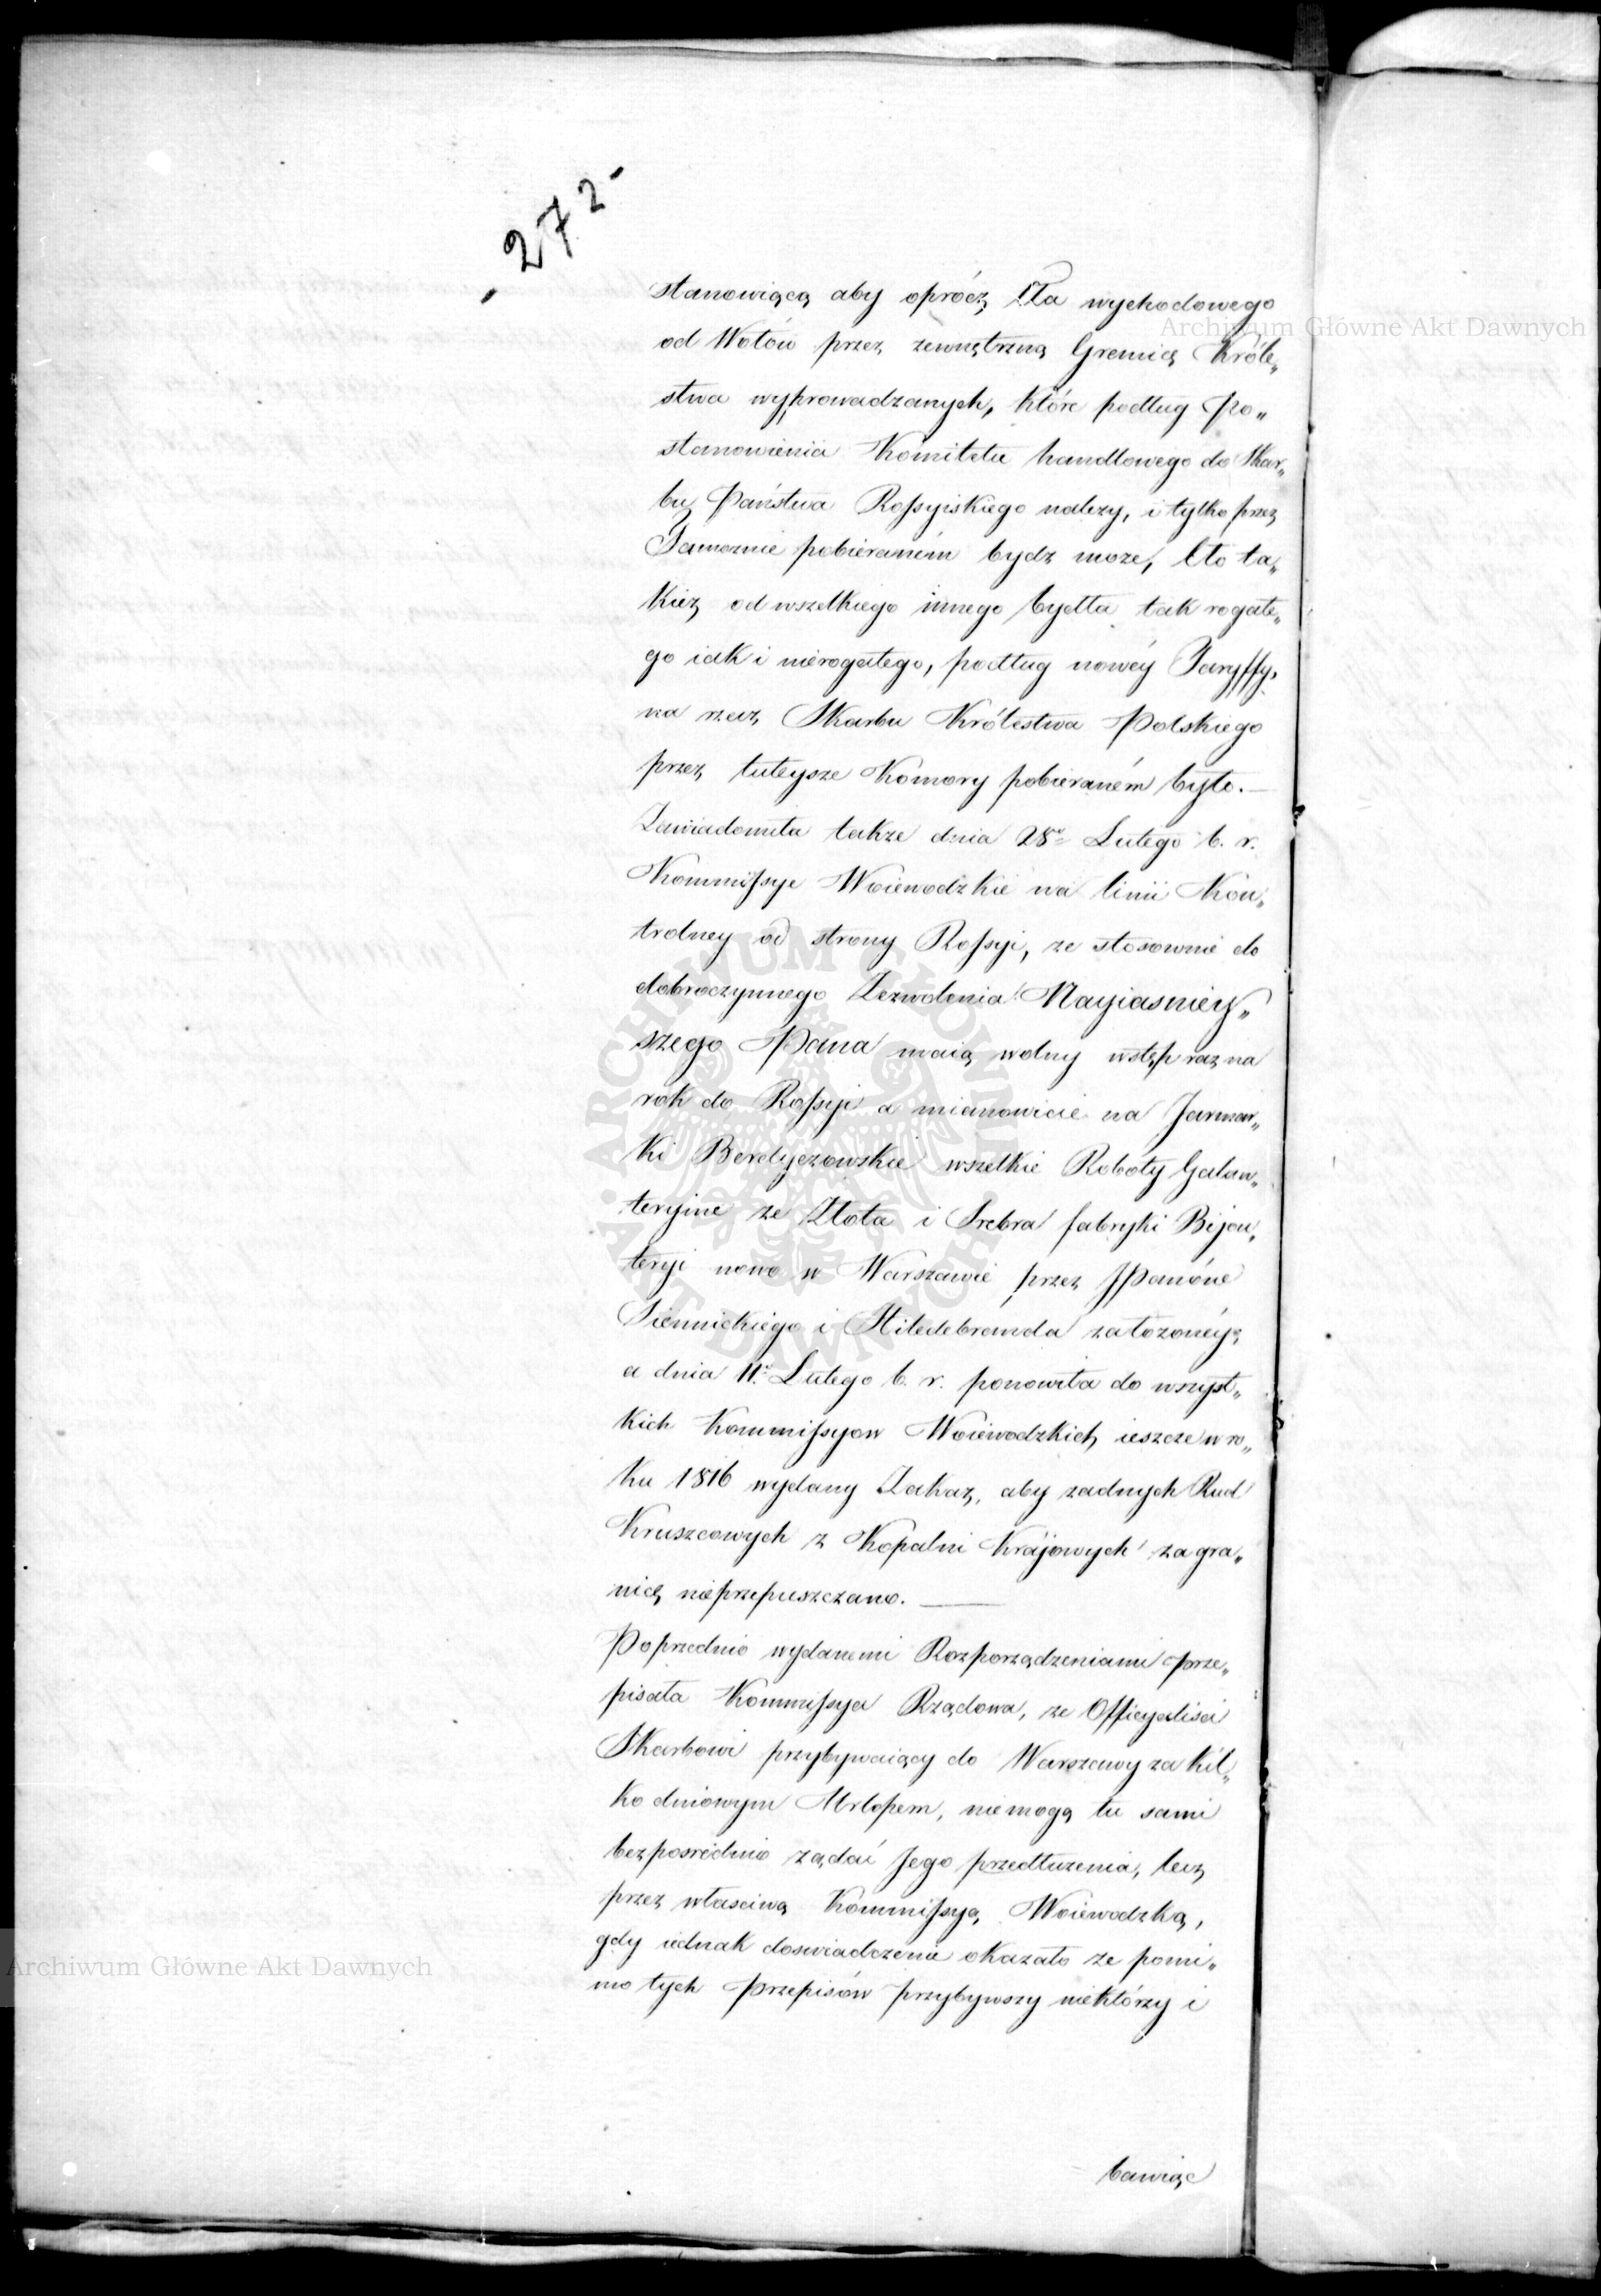 - 272 -
stanowiącą aby oprócz Cła wychodowego
Archiwum Główne Akt Dawnych
od Wołów przez zewnętrzną Granicę Króle„
stwa wyprowadzanych, które podług Po„
stanowienia Komitetu handlowego do Skar„
bu Państwa Rossyiskiego należy, i tylko przez
Tamoznie pobieraném bydz moze, Cło ta„
kież od wszelkiego innego bydła tak rogate„
go iak i nierogatego, podług nowéy Taryffy,
na rzecz Skarbu Królestwa Polskiego
przez tuteysze Komory pobieraném było. —
Zawiadomiła także dnia 28º Lutego b. r.
Kommissye Woiewodzkie na linii Kon„
trolney od strony Rossyi, ze stosownie do
dobroczynnego Zezwolenia Nayiasniey„
szego Pana maią wolny wstęp raz na
rok do Rossyi a mianowicie na Jarmar„
ki Berdyczowskie wszelkie Roboty Galan„
teryine ze Złota i Srebra fabryki Bijou„
teryi nowo w Warszawie przez JPanów
Siennickiego i Hildebranda załozonéy;
a dnia 11º Lutego b. r. ponowiła do wszyst„
kich Kommissyow Woiewodzkich ieszcze w ro„
ku 1816 wydany Zakaz, aby zadnych Rud
Kruszcowych z Kopalni Krajowych za gra„
nicę nieprzepuszczano. —
Poprzednio wydanemi Rozporządzeniami prze„
pisała Kommissya Rządowa, ze Officyalisci
Skarbowi przybywaiący do Warszawy za kil„
ko dniowym Urlopem, niemogą tu sami
bezposrednio ządać Jego przedłuzenia, lecz
przez własciwą Kommissyą Woiewodzką,
gdy iednak doswiadczenie okazało ze pomi„
Archiwum Główne Akt Dawnych
mo tych Przepisów przybywszy niektórzy i
bawiąc
ARCHIWUM GŁÓWNE AKT DAWNYCH